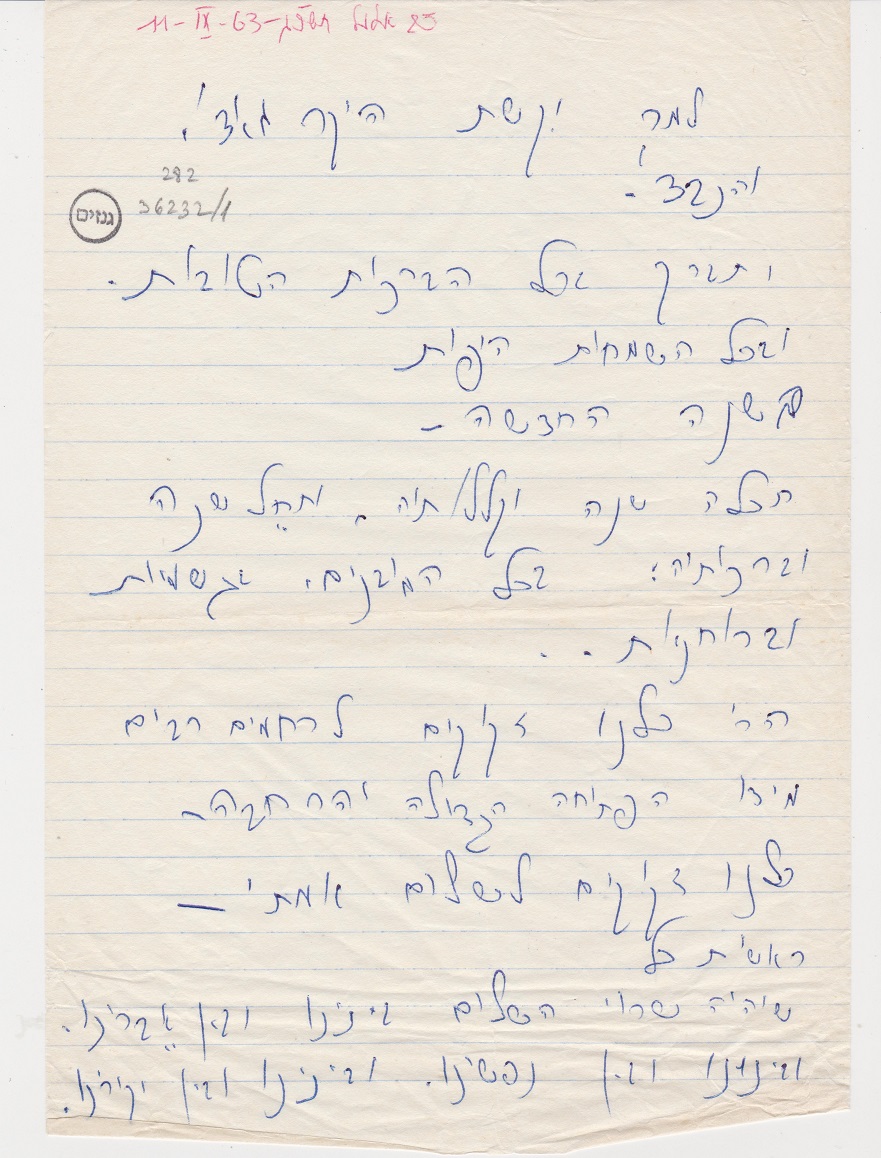 23 אלול תשכ"ג - 11-IX-63
למר י. קשת היקר
282
36232/1
גנזים
ותברך בכל הברכות הטובות.
ובכל השמחות היפות
בשנה החדשה –
תכלה שנה וקללותיה. ותחֵל שנה
וברכותיה: בכל המובנים, בגשמיות
וברוחניות . .
הרי כלנו זקוקים לרחמים רבים
מידו הפתוחה הגדולה והרחבה –
כלנו זקוקים לשלום אמתי —
ראשית כל
שיהיה שרוי השלום בינינו ובין אֵברינו.
ובינינו ובין נפשינו. ובינינו ובין יקירנו.